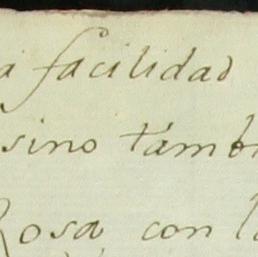 a facilidad
sino tamb
Rosa con l